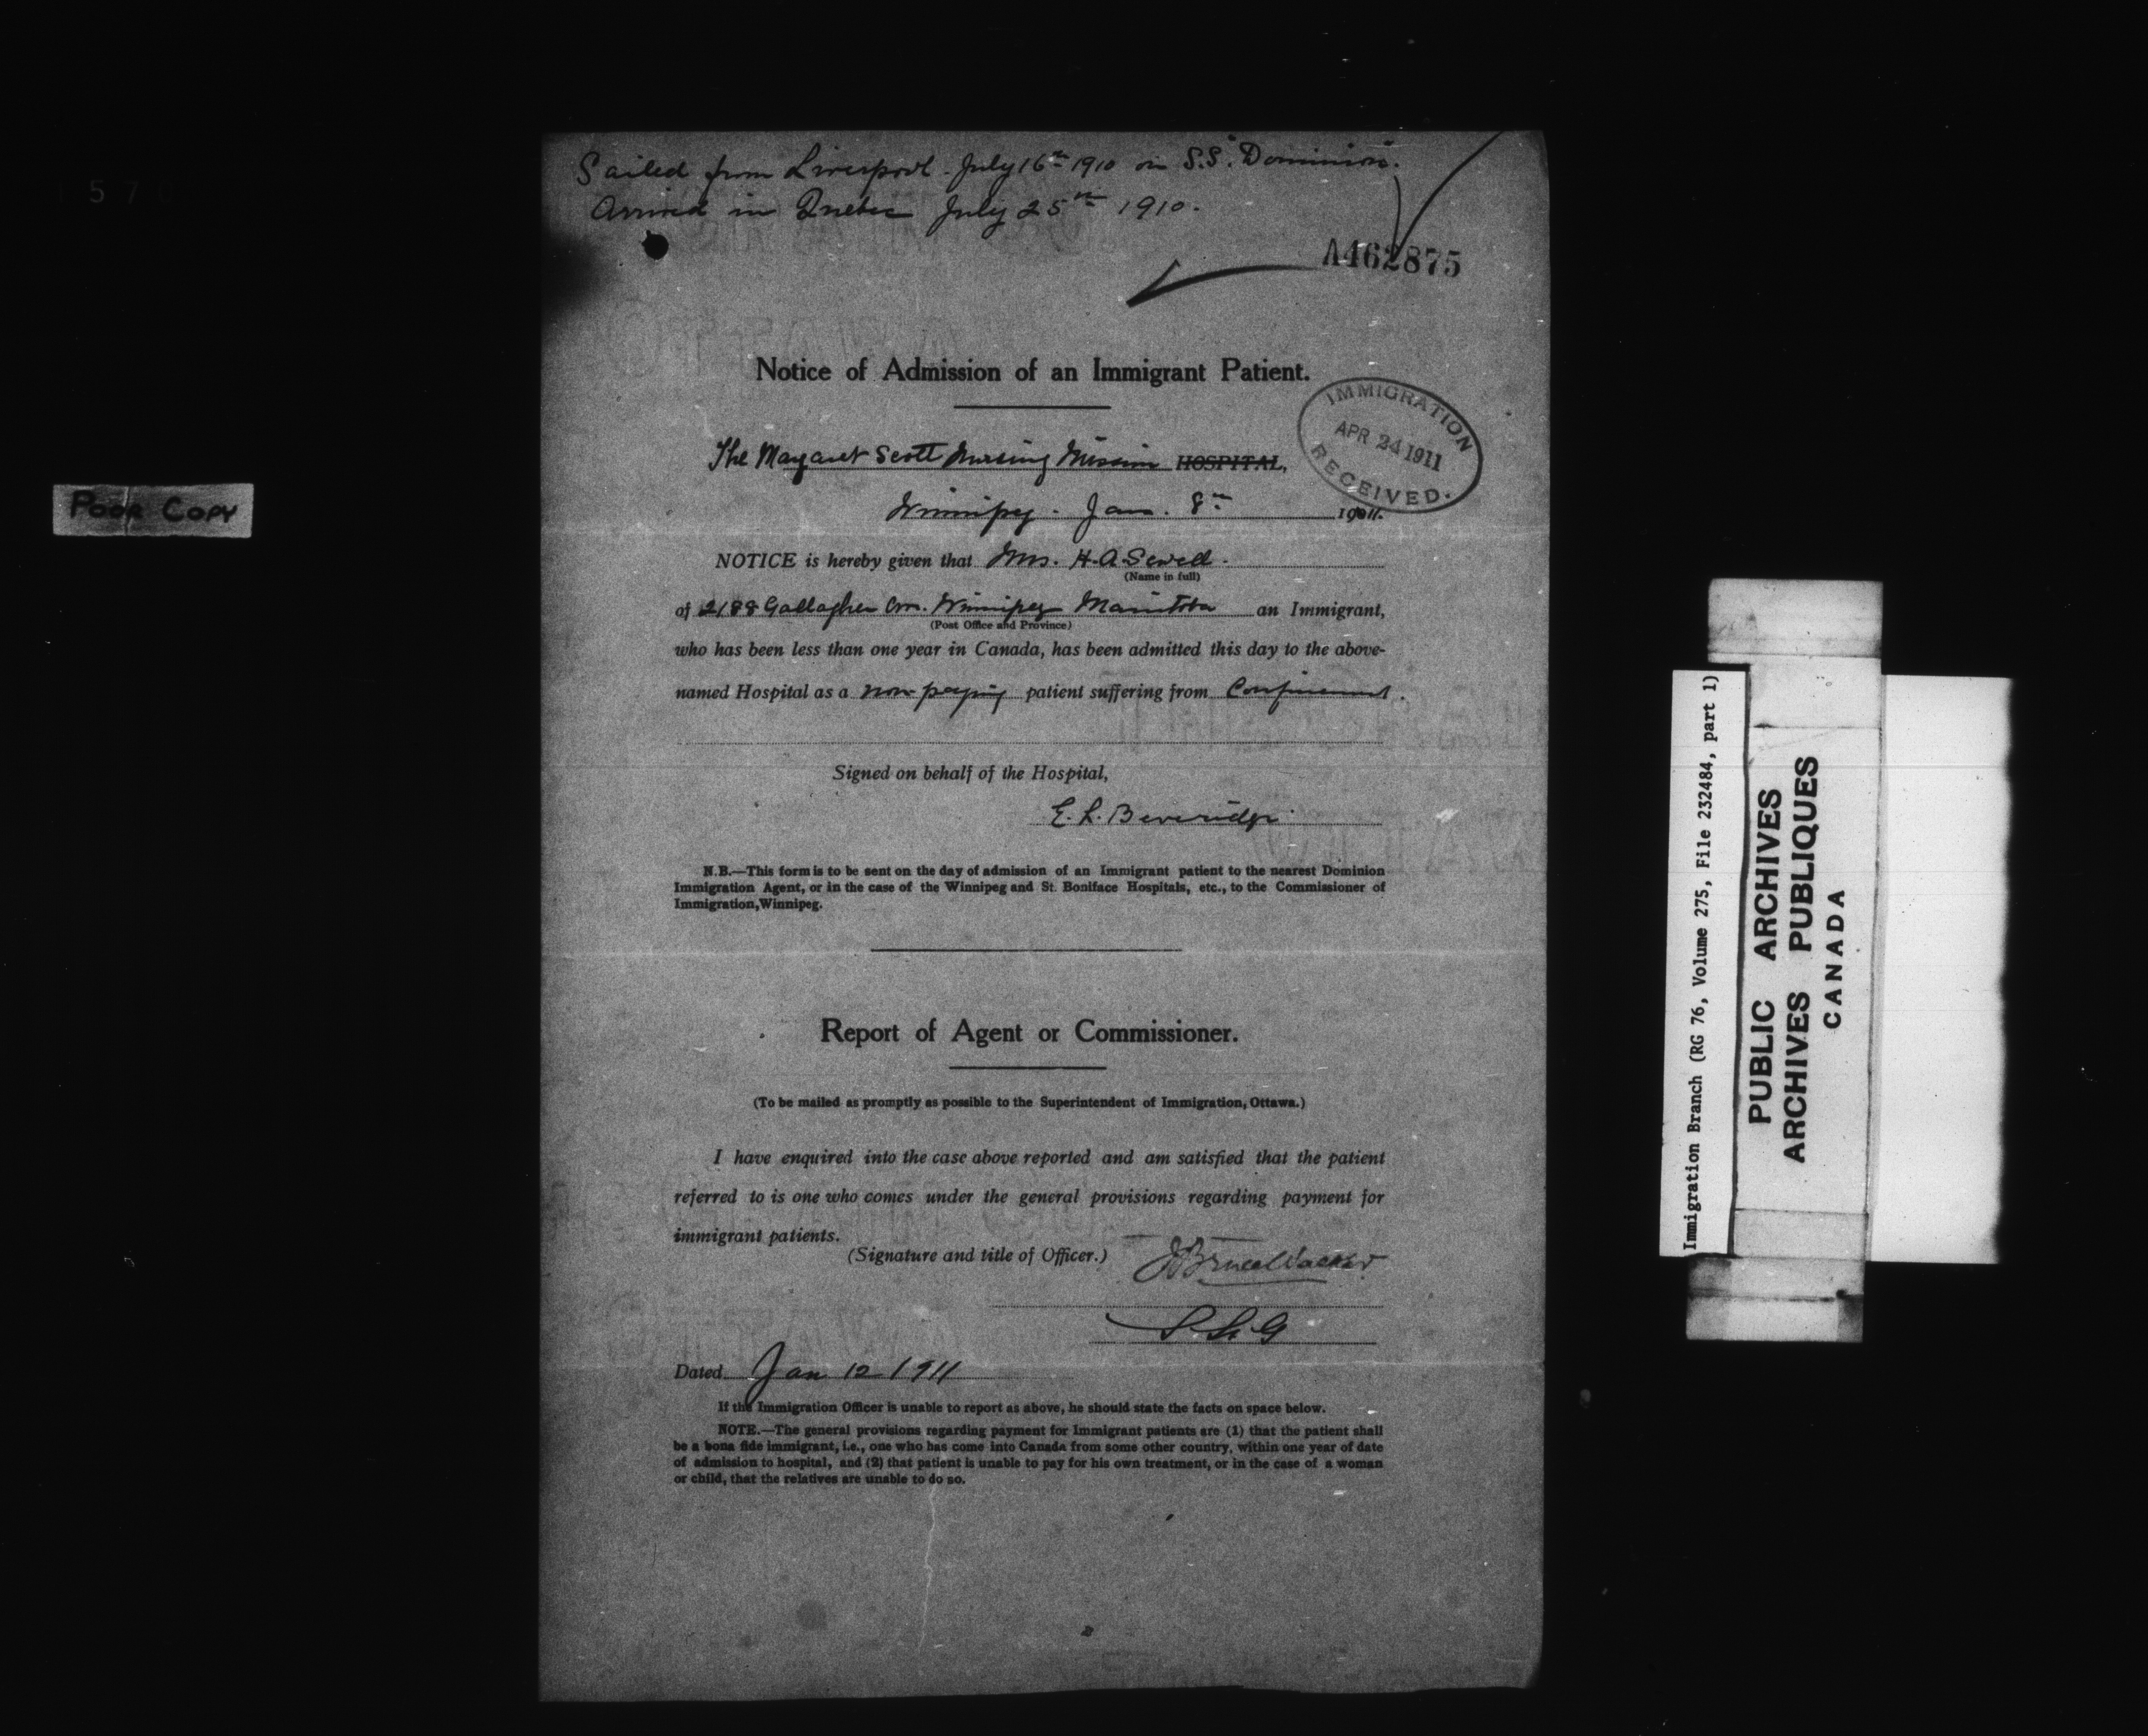 Sailed from Liverpool. July 16th 1910 on S.S. "Dominion".
Arrived in Quebec July 25th 1910.
A462875
Notice of Admission of an Immigrant Patient.
IMMIGRATION
APR 24 1911
RECEIVED.
The Margaret Scott Nursing Mission HOSPITAL,
Winnipeg. Jan. 8th 1911.
NOTICE is hereby given that Mrs. H. A. Sewell.
(Name in full)
of 2188 Gallagher Winnipeg Manitoba an Immigrant,
(Post Office and Province)
who has been less than one year in Canada, has been admitted this day to the above-
named Hospital as a non paying patient suffering from Confinement.
Signed on behalf of the Hospital,
E. L. Beveridge.
N.B.—This form is to be sent on the day of admission of an Immigrant patient to the nearest Dominion
Immigration Agent, or in the case of the Winnipeg and St. Boniface Hospitals, etc., to the Commissioner of
Immigration, Winnipeg.
Report of Agent or Commissioner.
(To be mailed as promptly as possible to the Superintendent of Immigration, Ottawa.)
I have enquired into the case above reported and am satisfied that the patient
referred to is one who comes under the general provisions regarding payment for
immigrant patients.
(Signature and title of Officer.) J Bruce Walker
Dated Jan 12 1911
If the Immigration Officer is unable to report as above, he should state the facts on space below.
NOTE.—The general provisions regarding payment for Immigrant patients are (1) that the patient shall
be a bona fide immigrant, i.e., one who has come into Canada from some other country, within one year of date
of admission to hospital, and (2) that patient is unable to pay for his own treatment, or in the case of a woman
or child, that the relatives are unable to do so.
Poor Copy
Immigration Branch (RG 76, Volume 275, File 232484, part 1)
PUBLIC ARCHIVES
ARCHIVES PUBLIQUES
CANADA